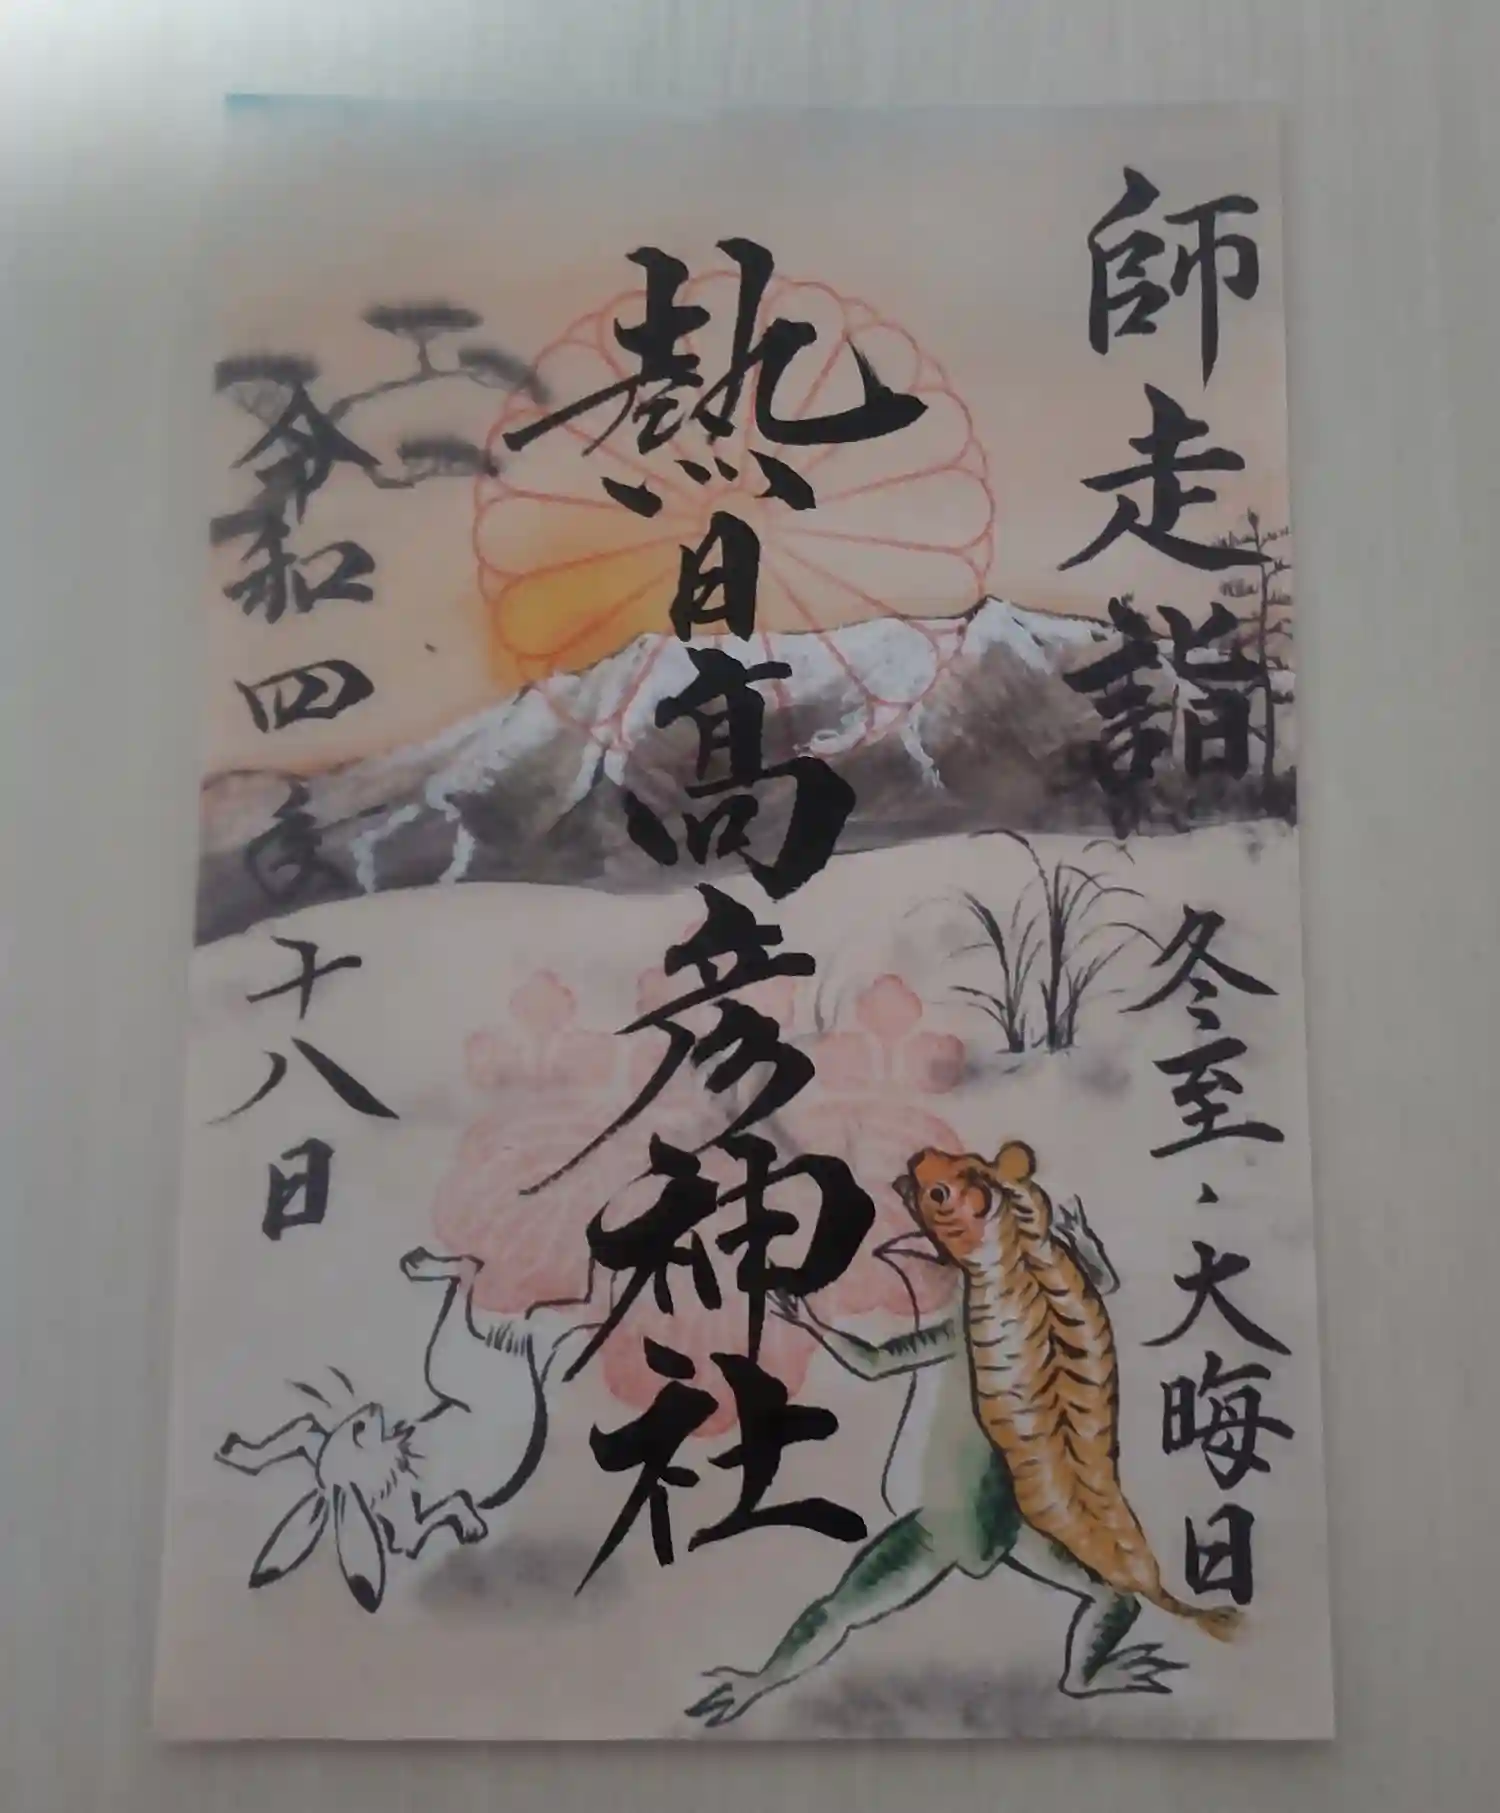 師走詣
冬至・大晦日
熱日高彦神社
令和四年
十八日